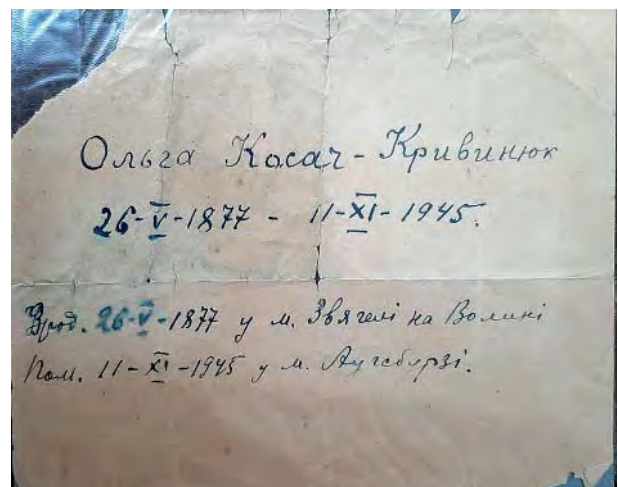 Ольга Косач-Кривинюк
26-V-1877 - 11-XI-1945.
Врод. 26-V-1877 у м. Звягелі на Волині
Пом. 11-XI-1945 у м. Аугсбурзі.